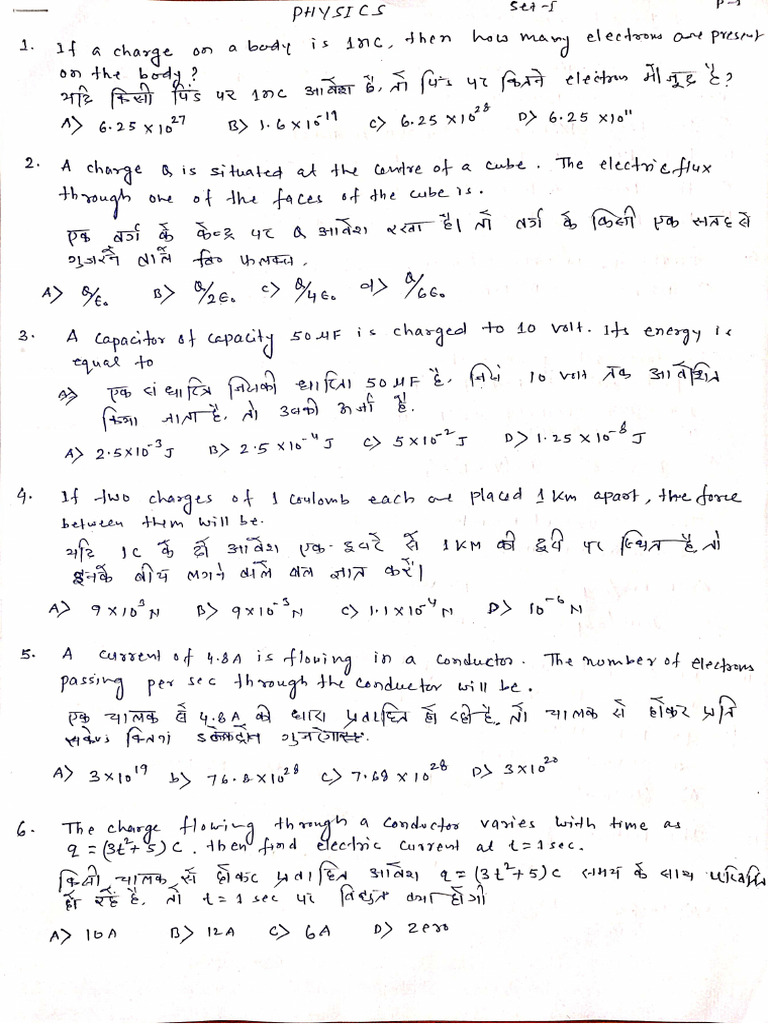 PHYSICS Set-1 P-1
1. If a charge on a body is 1nc, then how many electrons are present
on the body?
यदि किसी पिंड पर 1nc आवेश है, तो पिंड पर कितने electron मौजूद है?
A) 6.25 × 10²⁷ B) 1.6 × 10⁻¹⁹ C) 6.25 × 10²⁸ D) 6.25 × 10¹¹
2. A charge Q is situated at the centre of a cube. The electric flux
through one of the faces of the cube is.
एक वर्ग के केन्द्र पर Q आवेश रखा है। तो वर्ग के किसी एक सतह से
गुजरने वाले फलक्स.
A) Q/ε₀ B) Q/2ε₀ C) Q/4ε₀ d) Q/6ε₀
3. A capacitor of capacity 50 μF is charged to 10 volt. Its energy is
equal to
एक संधारित्र जिसकी धारिता 50 μF है, जिसे 10 volt तक आवेशित
किया जाता है, तो उसकी ऊर्जा है.
A) 2.5×10⁻³ J B) 2.5 ×10⁻⁴ J C) 5 ×10⁻² J D) 1.25 × 10⁻⁸ J
4. If two charges of 1 coulomb each are placed 1 Km apart, the force
between them will be.
यदि 1C के दो आवेश एक-दूसरे से 1 KM की दूरी पर स्थित है, तो
इनके बीच लगने वाले बल ज्ञात करें।
A) 9 × 10³ N B) 9 × 10⁻³ N C) 1.1 × 10⁻⁴ N D) 10⁻⁶ N
5. A current of 4.8A is flowing in a conductor. The number of electrons
passing per sec through the conductor will be.
एक चालक से 4.8A की धारा प्रवाहित हो रही है, तो चालक से होकर प्रति
A) 3 × 10¹⁹ b) 76.8 × 10²⁸ C) 7.68 × 10²⁸ D) 3 × 10²⁰
6. The charge flowing through a conductor varies with time as
q = (3t² + 5) C. then find electric current at t = 1 sec.
किसी चालक से होकर प्रवाहित आवेश q = (3t² + 5) C समय के साथ
हो रहे है, तो t = 1 sec पर विद्युत क्या होगी
A) 10A B) 12A C) 6A D) Zero